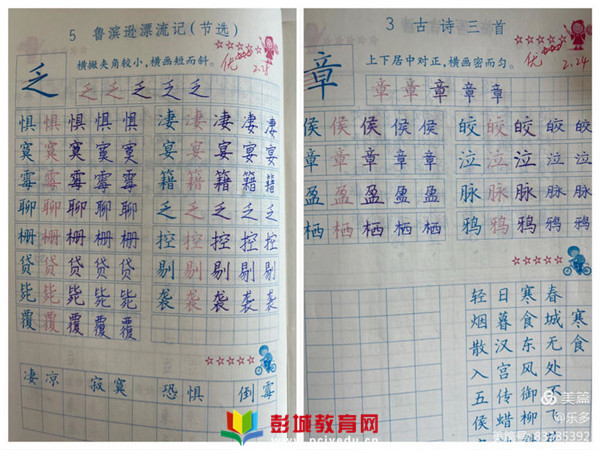 5 鲁滨逊漂流记(节选)
横撇夹角较小,横画短而斜。
优
2.18
乏 乏 乏 乏 乏 乏
惧 惧 惧 惧 惧
寞 寞 寞 寞 寞
霉 霉 霉 霉 霉
聊 聊 聊 聊 聊
栅 栅 栅 栅 栅
贷 贷 贷 贷 贷
毙 毙 毙 毙 毙
覆 覆 覆 覆 覆
凄 凄 凄 凄 凄
宴 宴 宴 宴 宴
籍 籍 籍 籍 籍
乏 乏 乏 乏 乏
控 控 控 控 控
剔 剔 剔 剔 剔
袭 袭 袭 袭 袭
凄凉 寂寞 恐惧 倒霉
3 古诗三首
上下居中对正,横画密而匀。
优
2.24
章 章 章 章 章 章
侯 侯 侯 侯 侯
章 章 章 章 章
盈 盈 盈 盈 盈
栖 栖 栖 栖 栖
皎 皎 皎 皎 皎
泣 泣 泣 泣 泣
脉 脉 脉 脉 脉
鸦 鸦 鸦 鸦 鸦
轻 日 寒 春
烟 暮 食 城 寒
散 汉 东 无 食
入 宫 风 处
五 传 御 不
侯 蜡 柳 飞
彭城教育网
美篇
@乐多